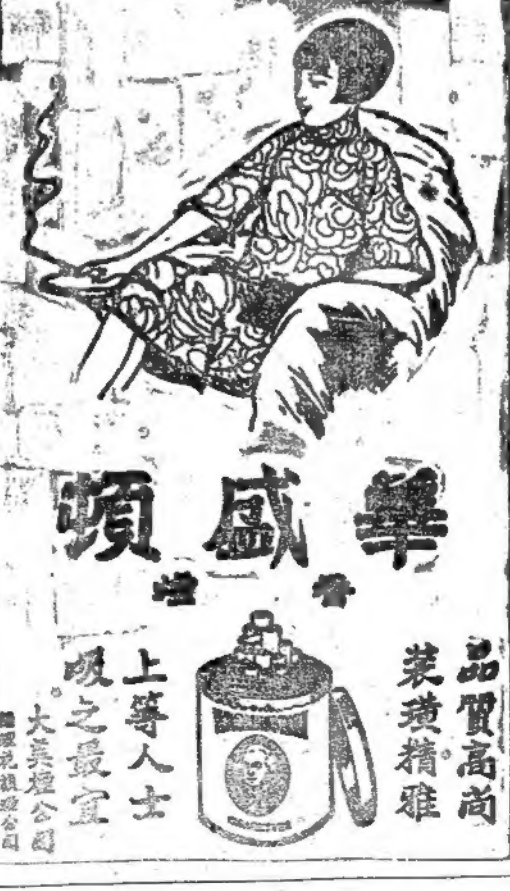 華盛頓
香煙
品質高尚
裝璜精雅
上等人士
吸之最宜。
大美煙公司